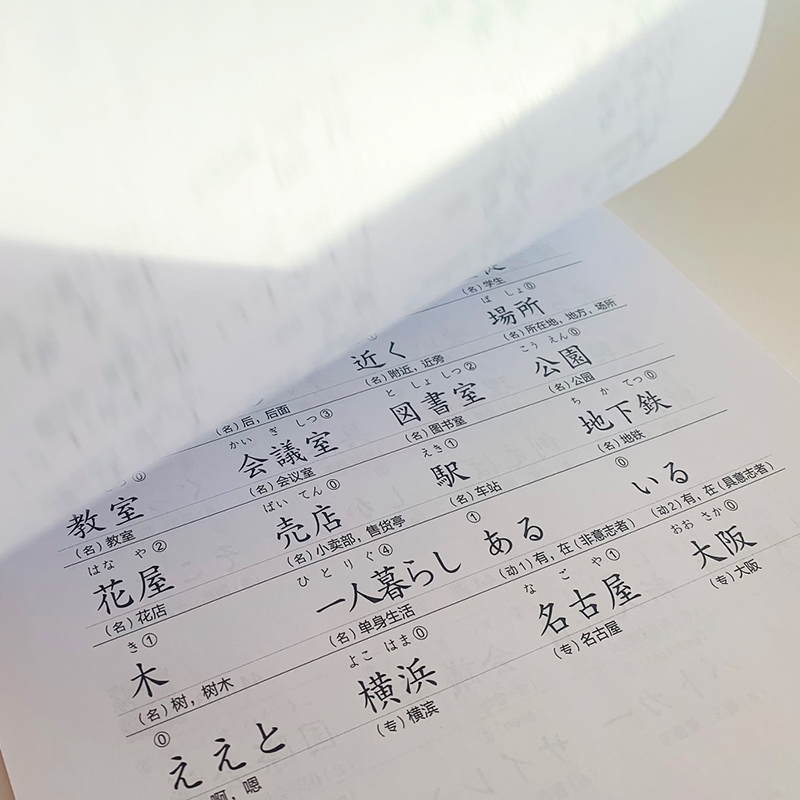 (名)学生
ば しょ⓪
近く 場所
(名)后，后面 (名)附近，近旁 (名)所在地，地方，场所
つ⓪ かい ぎ しつ③ と しょ しつ② こう えん⓪
教室 会議室 図書室 公園
(名)教室 (名)会议室 (名)图书室 (名)公园
はな や② ばい てん⓪ えき① ち か てつ⓪
花屋 売店 駅 地下鉄
(名)花店 (名)小卖部，售货亭 (名)车站 (名)地铁
き① ひとり ぐ④ ① ⓪
木 一人暮らし ある いる
(名)树，树木 (名)单身生活 (动1)有，在(非意志者) (动2)有，在(具意志者)
⓪ よこ はま⓪ な ご や① おお さか⓪
ええと 横浜 名古屋 大阪
啊，嗯 (专)横滨 (专)名古屋 (专)大阪